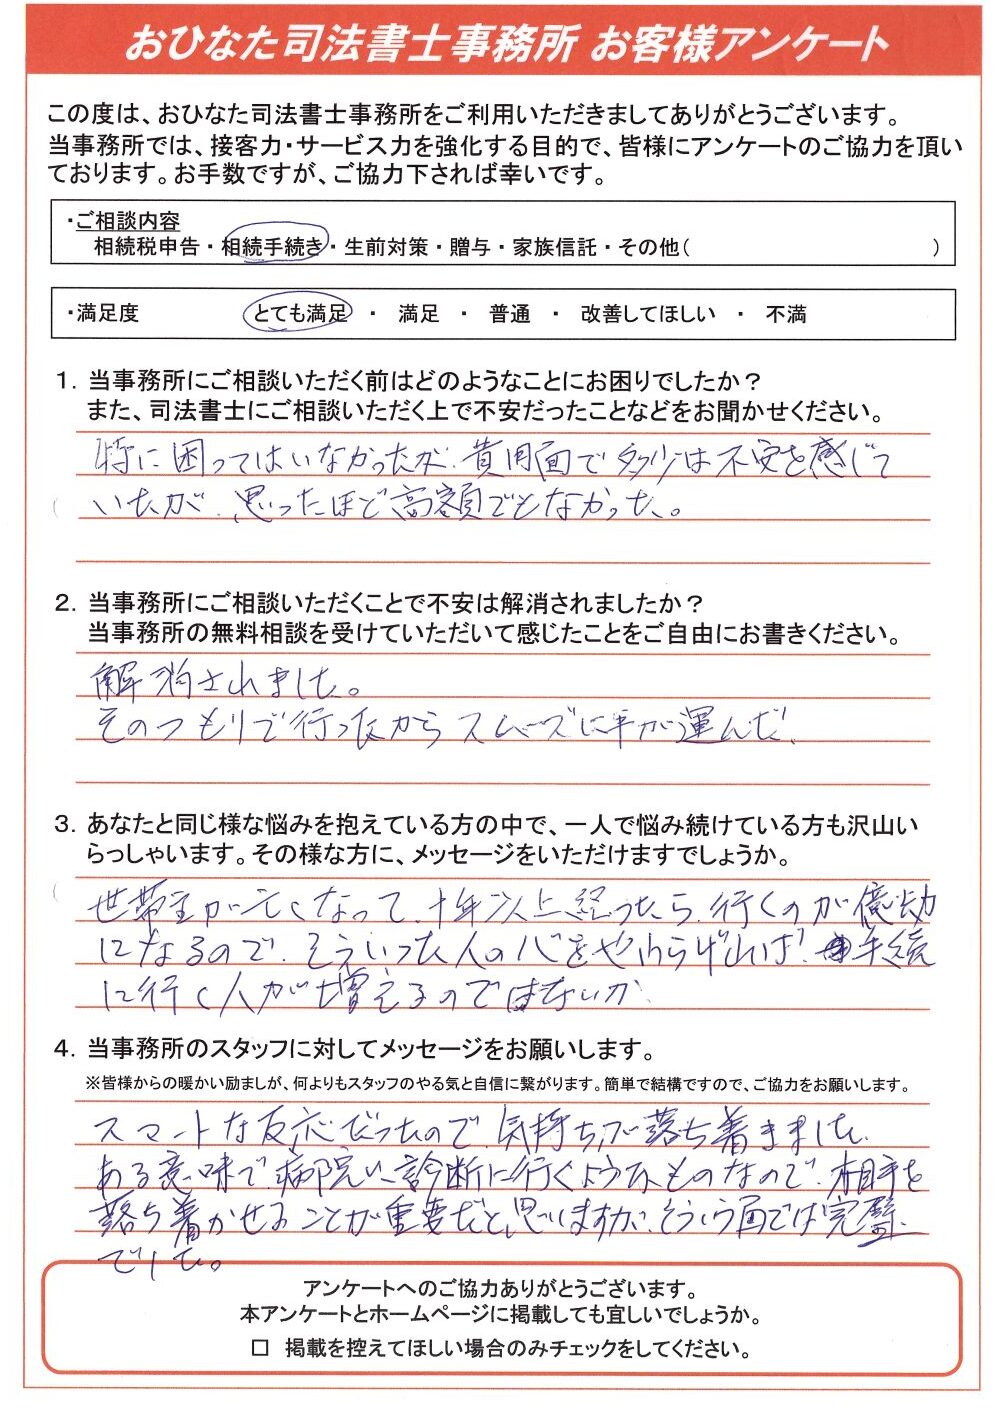 おひなた司法書士事務所 お客様アンケート
この度は、おひなた司法書士事務所をご利用いただきましてありがとうございます。
当事務所では、接客力・サービス力を強化する目的で、皆様にアンケートのご協力を頂い
ております。お手数ですが、ご協力下されば幸いです。
・ご相談内容
相続税申告・相続手続き・生前対策・贈与・家族信託・その他( )
・満足度 とても満足 ・ 満足 ・ 普通 ・ 改善してほしい ・ 不満
1. 当事務所にご相談いただく前はどのようなことにお困りでしたか?
また、司法書士にご相談いただく上で不安だったことなどをお聞かせください。
特に困ってはいなかったが、費用面で多少は不安を感じて
いたが、思ったほど高額でもなかった。
2. 当事務所にご相談いただくことで不安は解消されましたか?
当事務所の無料相談を受けていただいて感じたことをご自由にお書きください。
解消されました。
そのつもりで行ったからスムーズに事が運んだ。
3. あなたと同じ様な悩みを抱えている方の中で、一人で悩み続けている方も沢山い
らっしゃいます。その様な方に、メッセージをいただけますでしょうか。
世帯主が亡くなって、十年以上経ったら、行くのが億劫
になるので、そういった人の心をやわらげれば、手続
に行く人が増えるのではないか。
4. 当事務所のスタッフに対してメッセージをお願いします。
※皆様からの暖かい励ましが、何よりもスタッフのやる気と自信に繋がります。簡単で結構ですので、ご協力をお願いします。
スマートな反応だったので、気持ちが落ち着きました。
ある意味で病院に診断に行くようなものなので、相手を
落ち着かせることが重要だと思いますが、そういう面では完璧
でした。
アンケートへのご協力ありがとうございます。
本アンケートとホームページに掲載しても宜しいでしょうか。
□ 掲載を控えてほしい場合のみチェックをしてください。